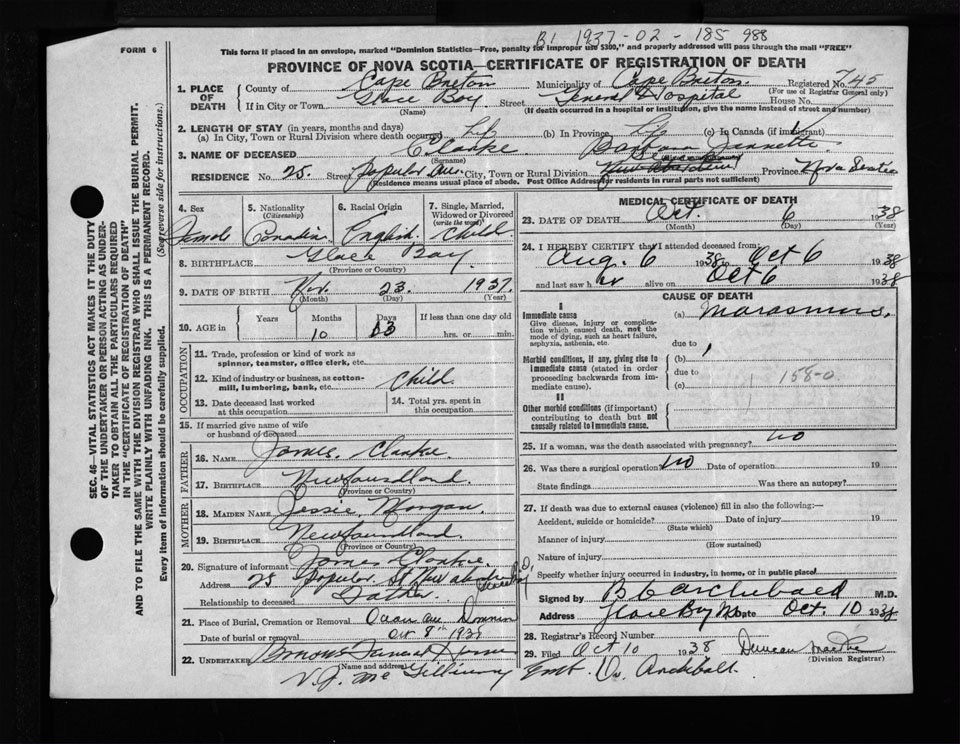 B1 1937-02-185 988
FORM 6
This form if placed in an envelope, marked "Dominion Statistics—Free, penalty for improper use $300," and properly addressed will pass through the mail "FREE"
PROVINCE OF NOVA SCOTIA—CERTIFICATE OF REGISTRATION OF DEATH
1. PLACE OF DEATH County of Cape Breton Municipality of Cape Breton Registered No. 745
(For use of Registrar General only)
If in City or Town Glace Bay Street General Hospital House No.
(Name) (If death occurred in a hospital or institution, give the name instead of street and number)
2. LENGTH OF STAY (in years, months and days)
(a) In City, Town or Rural Division where death occurred Life (b) In Province Life (c) In Canada (if immigrant)
3. NAME OF DECEASED Clarke Barbara Jannette
(Surname)
RESIDENCE No. 25 Street Popular Ave. City, Town or Rural Division New Aberdeen Province Nova Scotia
(Residence means usual place of abode. Post Office Address for residents in rural parts not sufficient)
4. Sex 5. Nationality (Citizenship) 6. Racial Origin 7. Single, Married, Widowed or Divorced (write the word)
Female Canadian English Child
8. BIRTHPLACE Glace Bay
(Province or Country)
9. DATE OF BIRTH Nov. 23 1937
(Month) (Day) (Year)
10. AGE in Years Months Days If less than one day old
10 13 hrs. or min.
OCCUPATION
11. Trade, profession or kind of work as spinner, teamster, office clerk, etc.
12. Kind of industry or business, as cotton-mill, lumbering, bank, etc. Child
13. Date deceased last worked at this occupation 14. Total yrs. spent in this occupation
15. If married give name of wife or husband of deceased
FATHER
16. NAME James Clarke
17. BIRTHPLACE Newfoundland
(Province or Country)
MOTHER
18. MAIDEN NAME Jessie Morgan
19. BIRTHPLACE Newfoundland
(Province or Country)
20. Signature of informant James Clarke
Address 25 Popular St New Aberdeen
Relationship to deceased Father
21. Place of Burial, Cremation or Removal Ocean Ave Dominion
Date of burial or removal Oct 8th 1938
22. UNDERTAKER Funeral Home
(Name and address)
V.J. McGillivray
MEDICAL CERTIFICATE OF DEATH
23. DATE OF DEATH Oct. 6 1938
(Month) (Day) (Year)
24. I HEREBY CERTIFY that I attended deceased from:
Aug. 6 1938 to Oct 6 1938
and last saw her alive on Oct 6 1938
CAUSE OF DEATH
I
Immediate cause (a) Marasmus.
Give disease, injury or complication which caused death, not the mode of dying, such as heart failure, asphyxia, asthenia, etc.
due to
Morbid conditions, if any, giving rise to immediate cause (stated in order proceeding backwards from immediate cause). (b)
due to
(c) 158-0
II
Other morbid conditions (if important) contributing to death but not causally related to immediate cause.
25. If a woman, was the death associated with pregnancy? no
26. Was there a surgical operation? no Date of operation 19
State findings Was there an autopsy?
27. If death was due to external causes (violence) fill in also the following:—
Accident, suicide or homicide? Date of injury 19
(State which)
Manner of injury
(How sustained)
Nature of injury
Specify whether injury occurred in industry, in home, or in public place.
Signed by B C Archibald M.D.
Address Glace Bay NS Date Oct. 10 1938
28. Registrar's Record Number
29. Filed Oct 10 1938 Duncan
(Division Registrar)
Emb. Dr. Archibald
SEC. 46—VITAL STATISTICS ACT MAKES IT THE DUTY
OF THE UNDERTAKER OR PERSON ACTING AS UNDER-
TAKER TO OBTAIN ALL THE PARTICULARS REQUIRED
IN THE "CERTIFICATE OF REGISTRATION OF DEATH"
AND TO FILE THE SAME WITH THE DIVISION REGISTRAR WHO SHALL ISSUE THE BURIAL PERMIT.
WRITE PLAINLY WITH UNFADING INK. THIS IS A PERMANENT RECORD.
Every item of information should be carefully supplied. (See reverse side for instructions.)